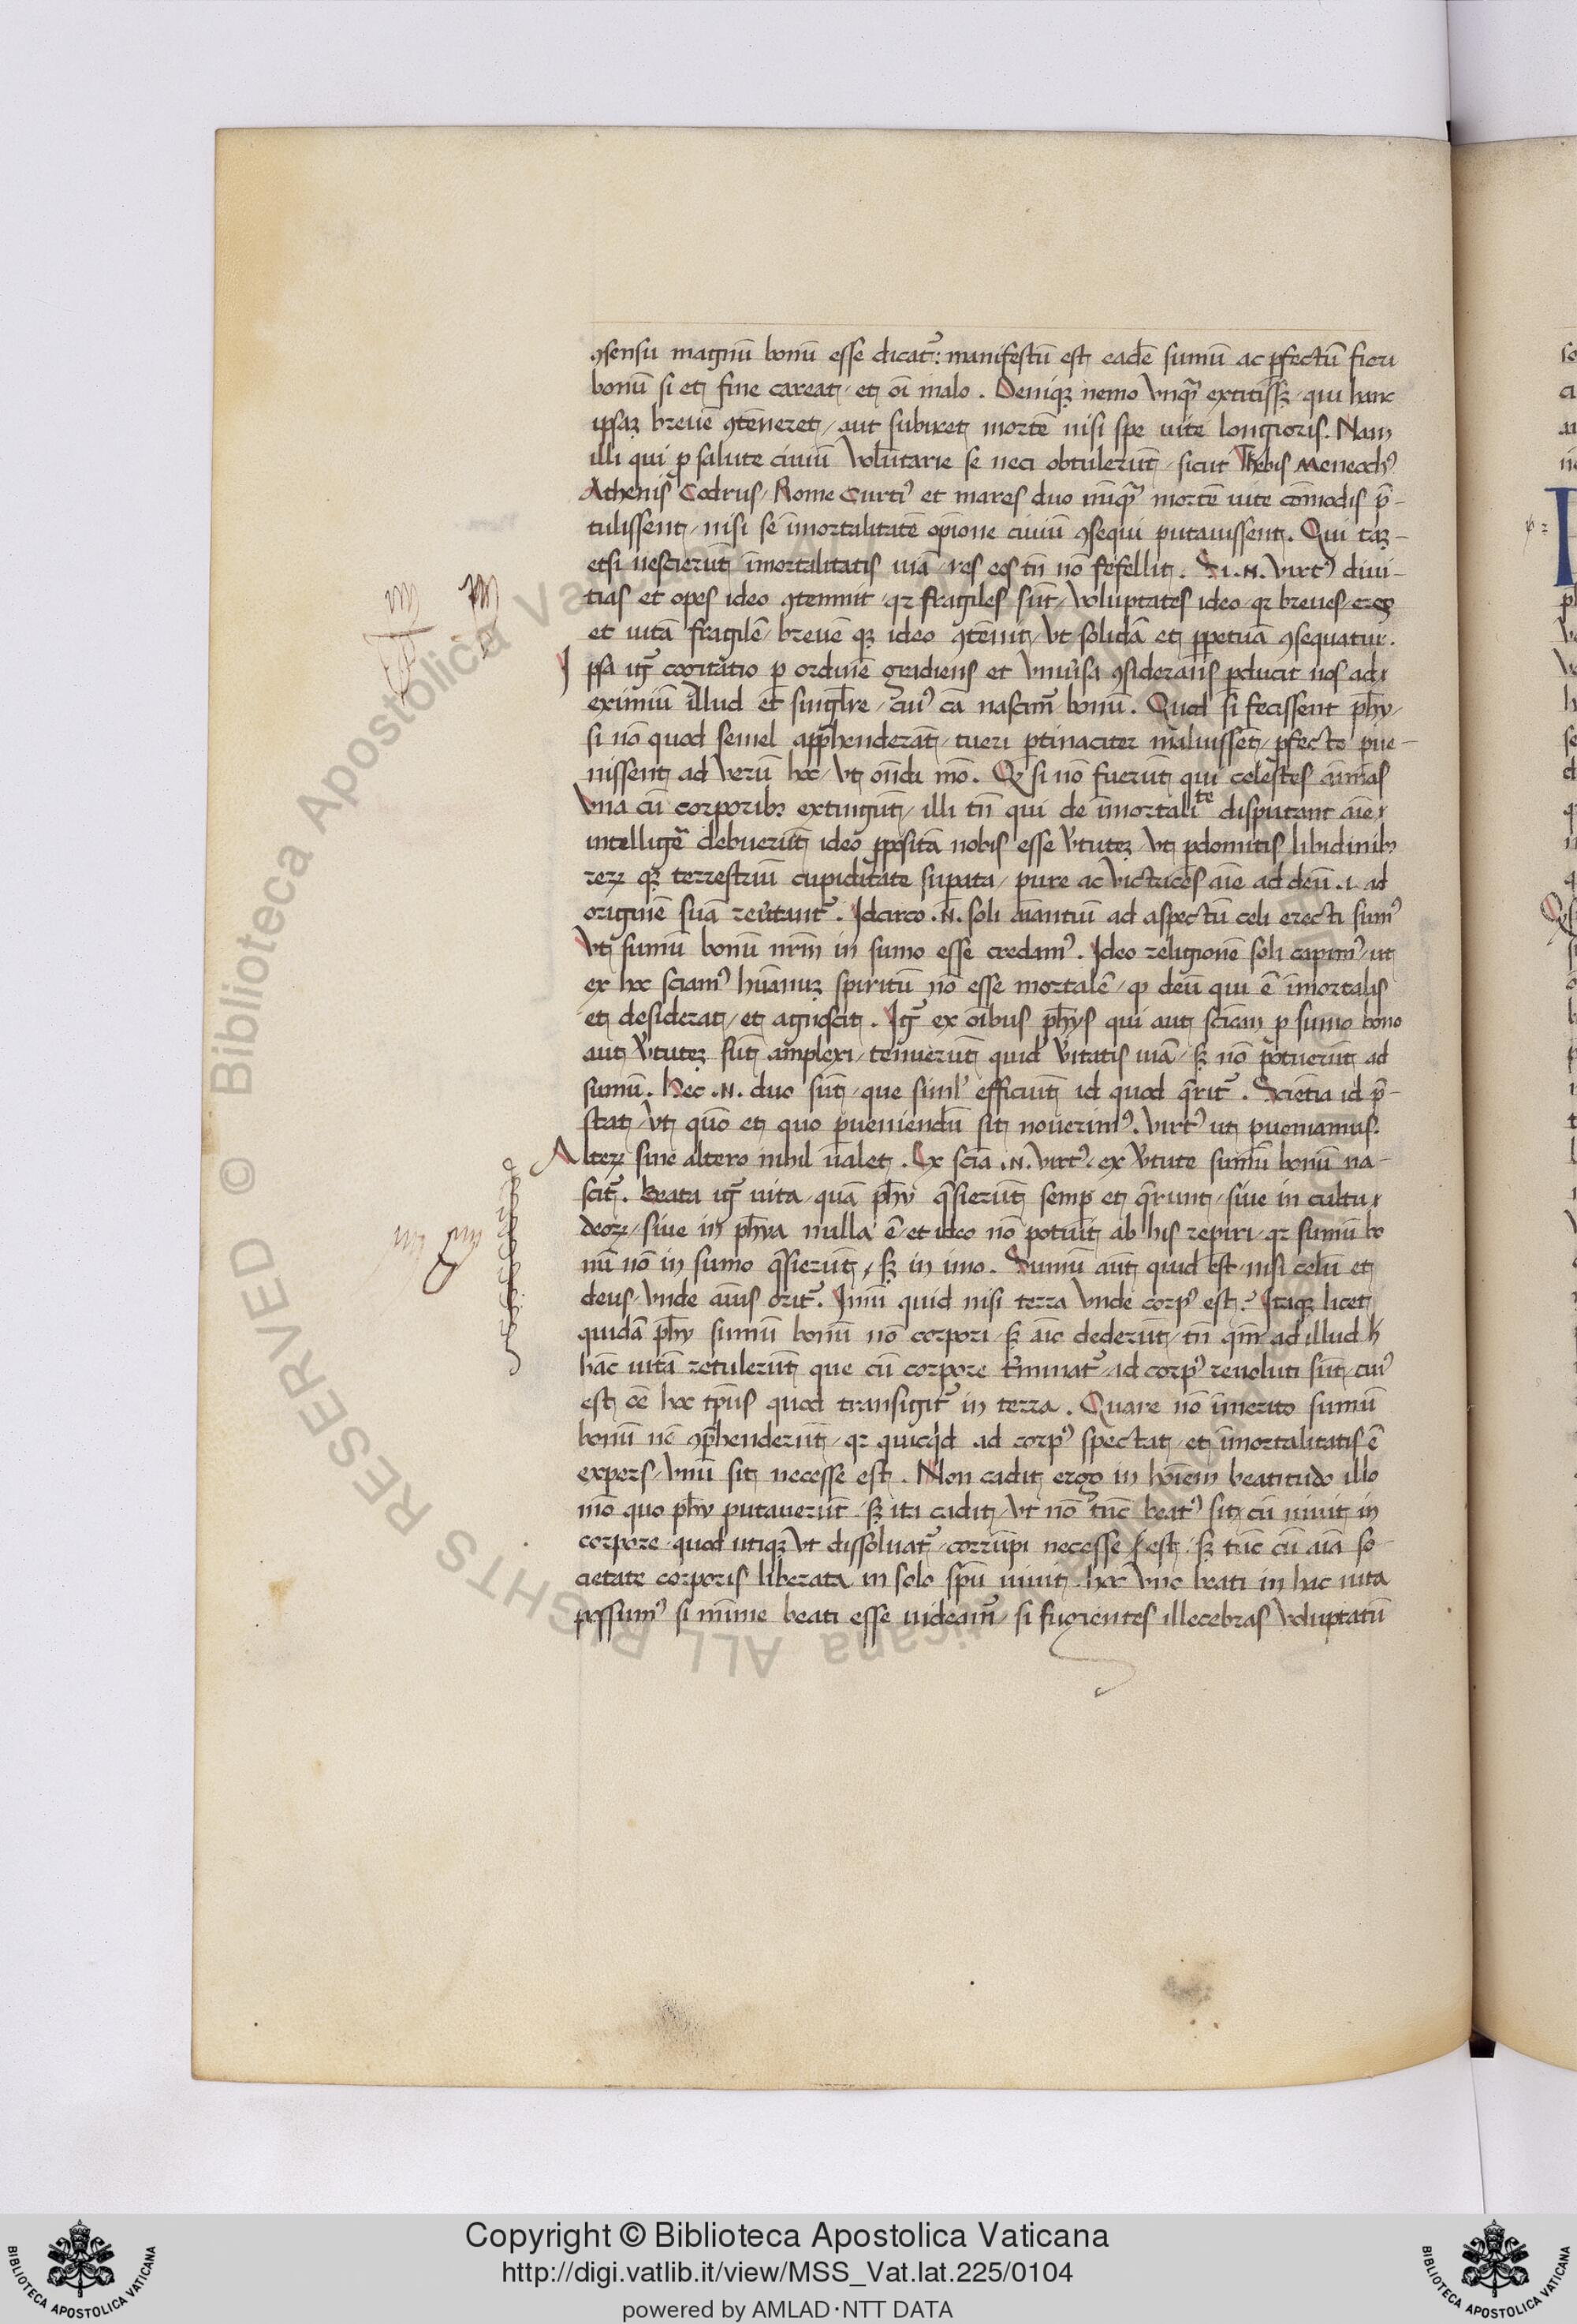 ꝯsensu magnū bonū esse dicat᷑: manifestū est eadē sumū ac ꝑfectū fieri
bonū si et fine careat / et oī malo. Deniqꝫ nemo vnqᷓ extitissꝫ / qui hanc
ipsaꝫ breuē ꝯtēneret / aut subiret mortē nisi spe uite longioris. Nam
illi qui ꝓ salute ciuiū volūtarie se neci obtulerūt / sicut Thebis Meneochꝰ
Athenis Codrus / Rome Curtiꝰ et mares duo nūqᷓ mortē uite cōmodis p̄-
tulissent / nisi se īmortalitatē opīone ciuiū ꝯsequi putauissent. Qui taꝫ-
etsi nescierūt īmortalitatis uiā / res eos tn̄ nō fefellit. Si .N. virtꝰ diui-
tias et opes ideo ꝯtemnit / qꝛ fragiles sūt / voluptates ideo / qꝛ breues / ergo
et uitā fragilē / breuē qꝫ ideo ꝯtēnit / vt solidā et ꝑpetuā ꝯsequatur.
Ipsa igr̄ cogitatio ꝑ ordinē gradiens et vniu᷑sa ꝯsiderans ꝑducit nos ad
eximiū illud et singl̄re / cuiꝰ cā nascim᷑ bonū. Quod si fecissent ph̄y /
si nō quod semel appͣhenderāt / tueri ꝑtinaciter maluissēt / ꝓfecto ꝑue-
nissent ad verū hoc / vt on̄di mō. Qꝙ si nō fuerūt qui celestes aīmas
vna cū corporibꝫ extingūt / illi tn̄ qui de īmortalite disputant aīe
intelligē debuerūt ideo ꝓpositā nobis esse v᷑tuteꝫ / vt ꝑdomitis libidinibꝫ
reꝝ qꝫ terrestriū cupiditate suꝑata / pure ac victrices aīe ad deū .i. ad
originē suā reu᷑tant᷑. Idcirco .N. soli aīantiū ad aspectū celi erecti sumꝰ
vt sumū bonū nr̄m in sumo esse credamꝰ. Ideo religionē soli capimꝰ / ut
ex hoc sciamꝰ hūanuꝫ spiritū nō esse mortalē / ꝙ deū qui ē īmortalis
et desiderat / et agnoscit. Igr̄ ex oībus ph̄ys qui aut sciēam ꝓ sumo bono
aut v᷑tuteꝫ sūt amplexi / tenuerūt quid v᷑itatis uiā / sꝫ nō potuerūt ad
sumū. Hec .N. duo sūt / que siml᷑ efficiūt id quod qͣrit᷑. Sciētia id p̄-
stat / vt quō et quo ꝑueniendū sit nouerimꝰ. virtꝰ ut ꝑueniamus.
Alteꝝ sine altero nihil ualet. Ex scīa .N. virtꝰ / ex v᷑tute sumū bonū na-
scit᷑. Beata igr̄ uita / quā ph̄y qͣsierūt semꝑ et qͣrunt / siue in cultu
deoꝝ / siue in ph̄ya nulla ē / et ideo nō potuit ab his reꝑiri / qꝛ sumū bo
nū nō in sumo qͣsierūt / sꝫ in imo. Sumū aūt quid est / nisi celū et
deus / vnde aīus orit᷑. Imū quid nisi terra vnde corpꝰ est? Itaqꝫ licet
quidā ph̄y sumū bonū nō corpori / sꝫ aīe dederūt / tn̄ qm̄ ad illud
hāc uitā retulerūt que cū corpore t᷑minat᷑ / ad corpꝰ reuoluti sūt / cuiꝰ
est oē hoc tp̄us quod transigit᷑ in terra. Quare nō īmerito sumū
bonū nō ꝯpͣhenderūt / qꝛ quicqͥd ad corpꝰ spectat / et īmortalitatis ē
expers / vnū sit necesse est. Non cadit ergo in hoīem beatitudo illo
mō quo ph̄y putauerūt / sꝫ ita cadit / vt nō tūc beatꝰ sit cū uiuit in
corpore / quod utiqꝫ vt dissoluat᷑ / corrūpi necesse est / sꝫ tūc cū aīa so
cietate corporis liberata in solo sp̄u uiuit. hoc vno beati in hac uita
possumꝰ si mīme beati esse uideam᷑ / si fugientes illecebras voluptatū
Copyright © Biblioteca Apostolica Vaticana
http://digi.vatlib.it/view/MSS_Vat.lat.225/0104
powered by AMLAD·NTT DATA